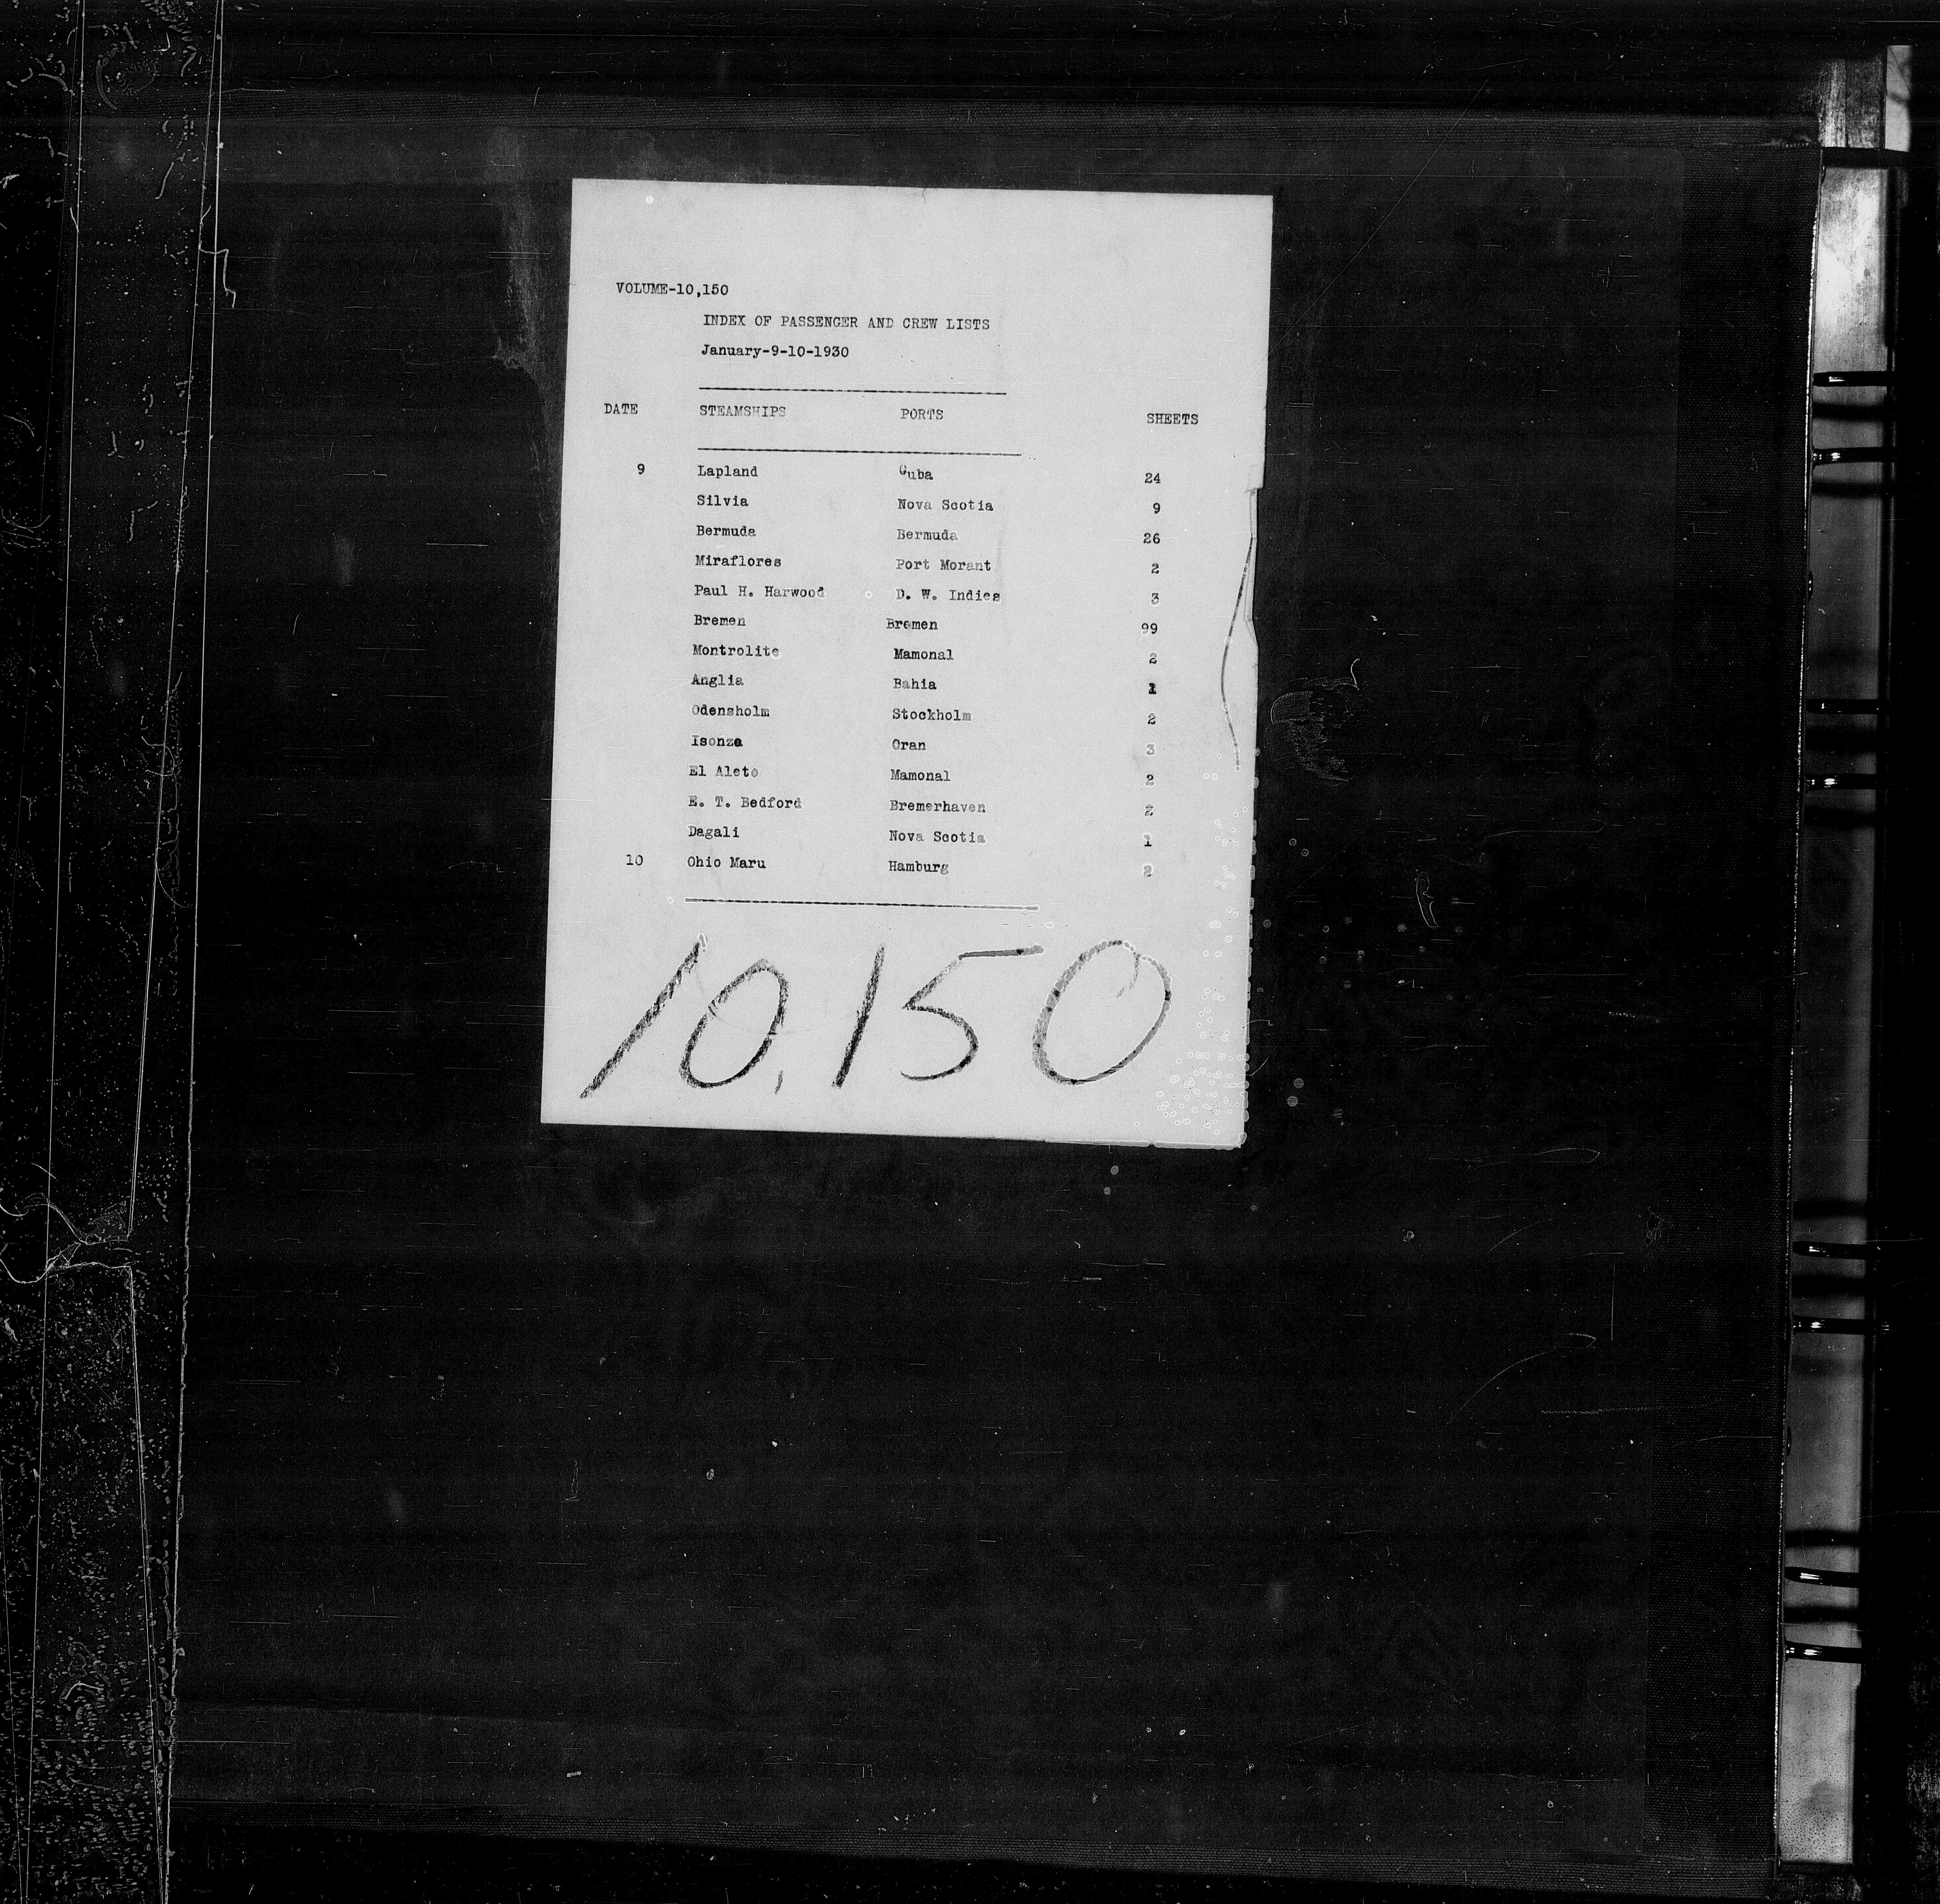 VOLUME-10,150
INDEX OF PASSENGER AND CREW LISTS
January-9-10-1930
DATE STEAMSHIPS PORTS SHEETS
9 Lapland Cuba 24
Silvia Nova Scotia 9
Bermuda Bermuda 26
Miraflores Port Morant 2
Paul H. Harwood D. W. Indies 3
Bremen Bremen 99
Montrolite Mamonal 2
Anglia Bahia 1
Odensholm Stockholm 2
Isonzo Oran 3
El Aleto Mamonal 2
E. T. Bedford Bremerhaven 2
Dagali Nova Scotia 1
10 Ohio Maru Hamburg 2
10,150